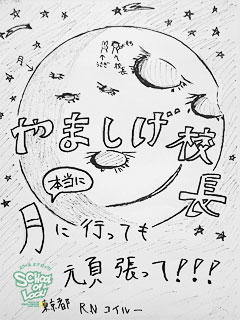 月→
校長
やましげ校長
本当に
月に行っても
頑張って!!!
SCHOOL OF LOCK!
東京都 RN コイルー